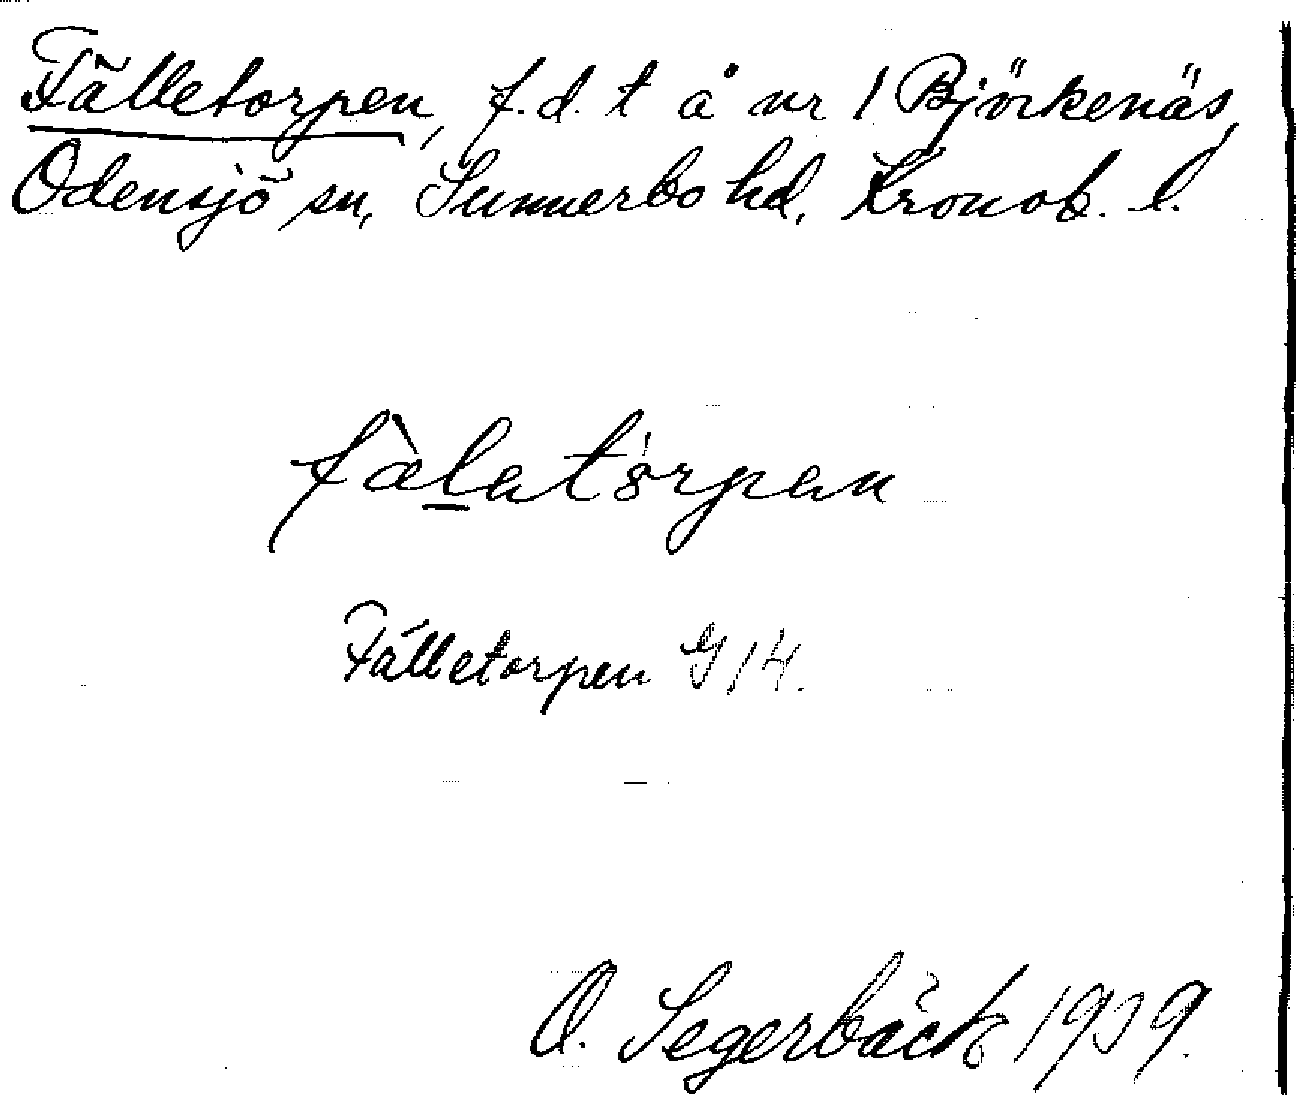 Fälletorpen, f.d. t å nr 1 Björkenäs,
Odensjö sn, Sunnerbo hd, Kronob. l.
fàlatórpan
Fälletorpen G 14.
O. Segerbäck 1939.